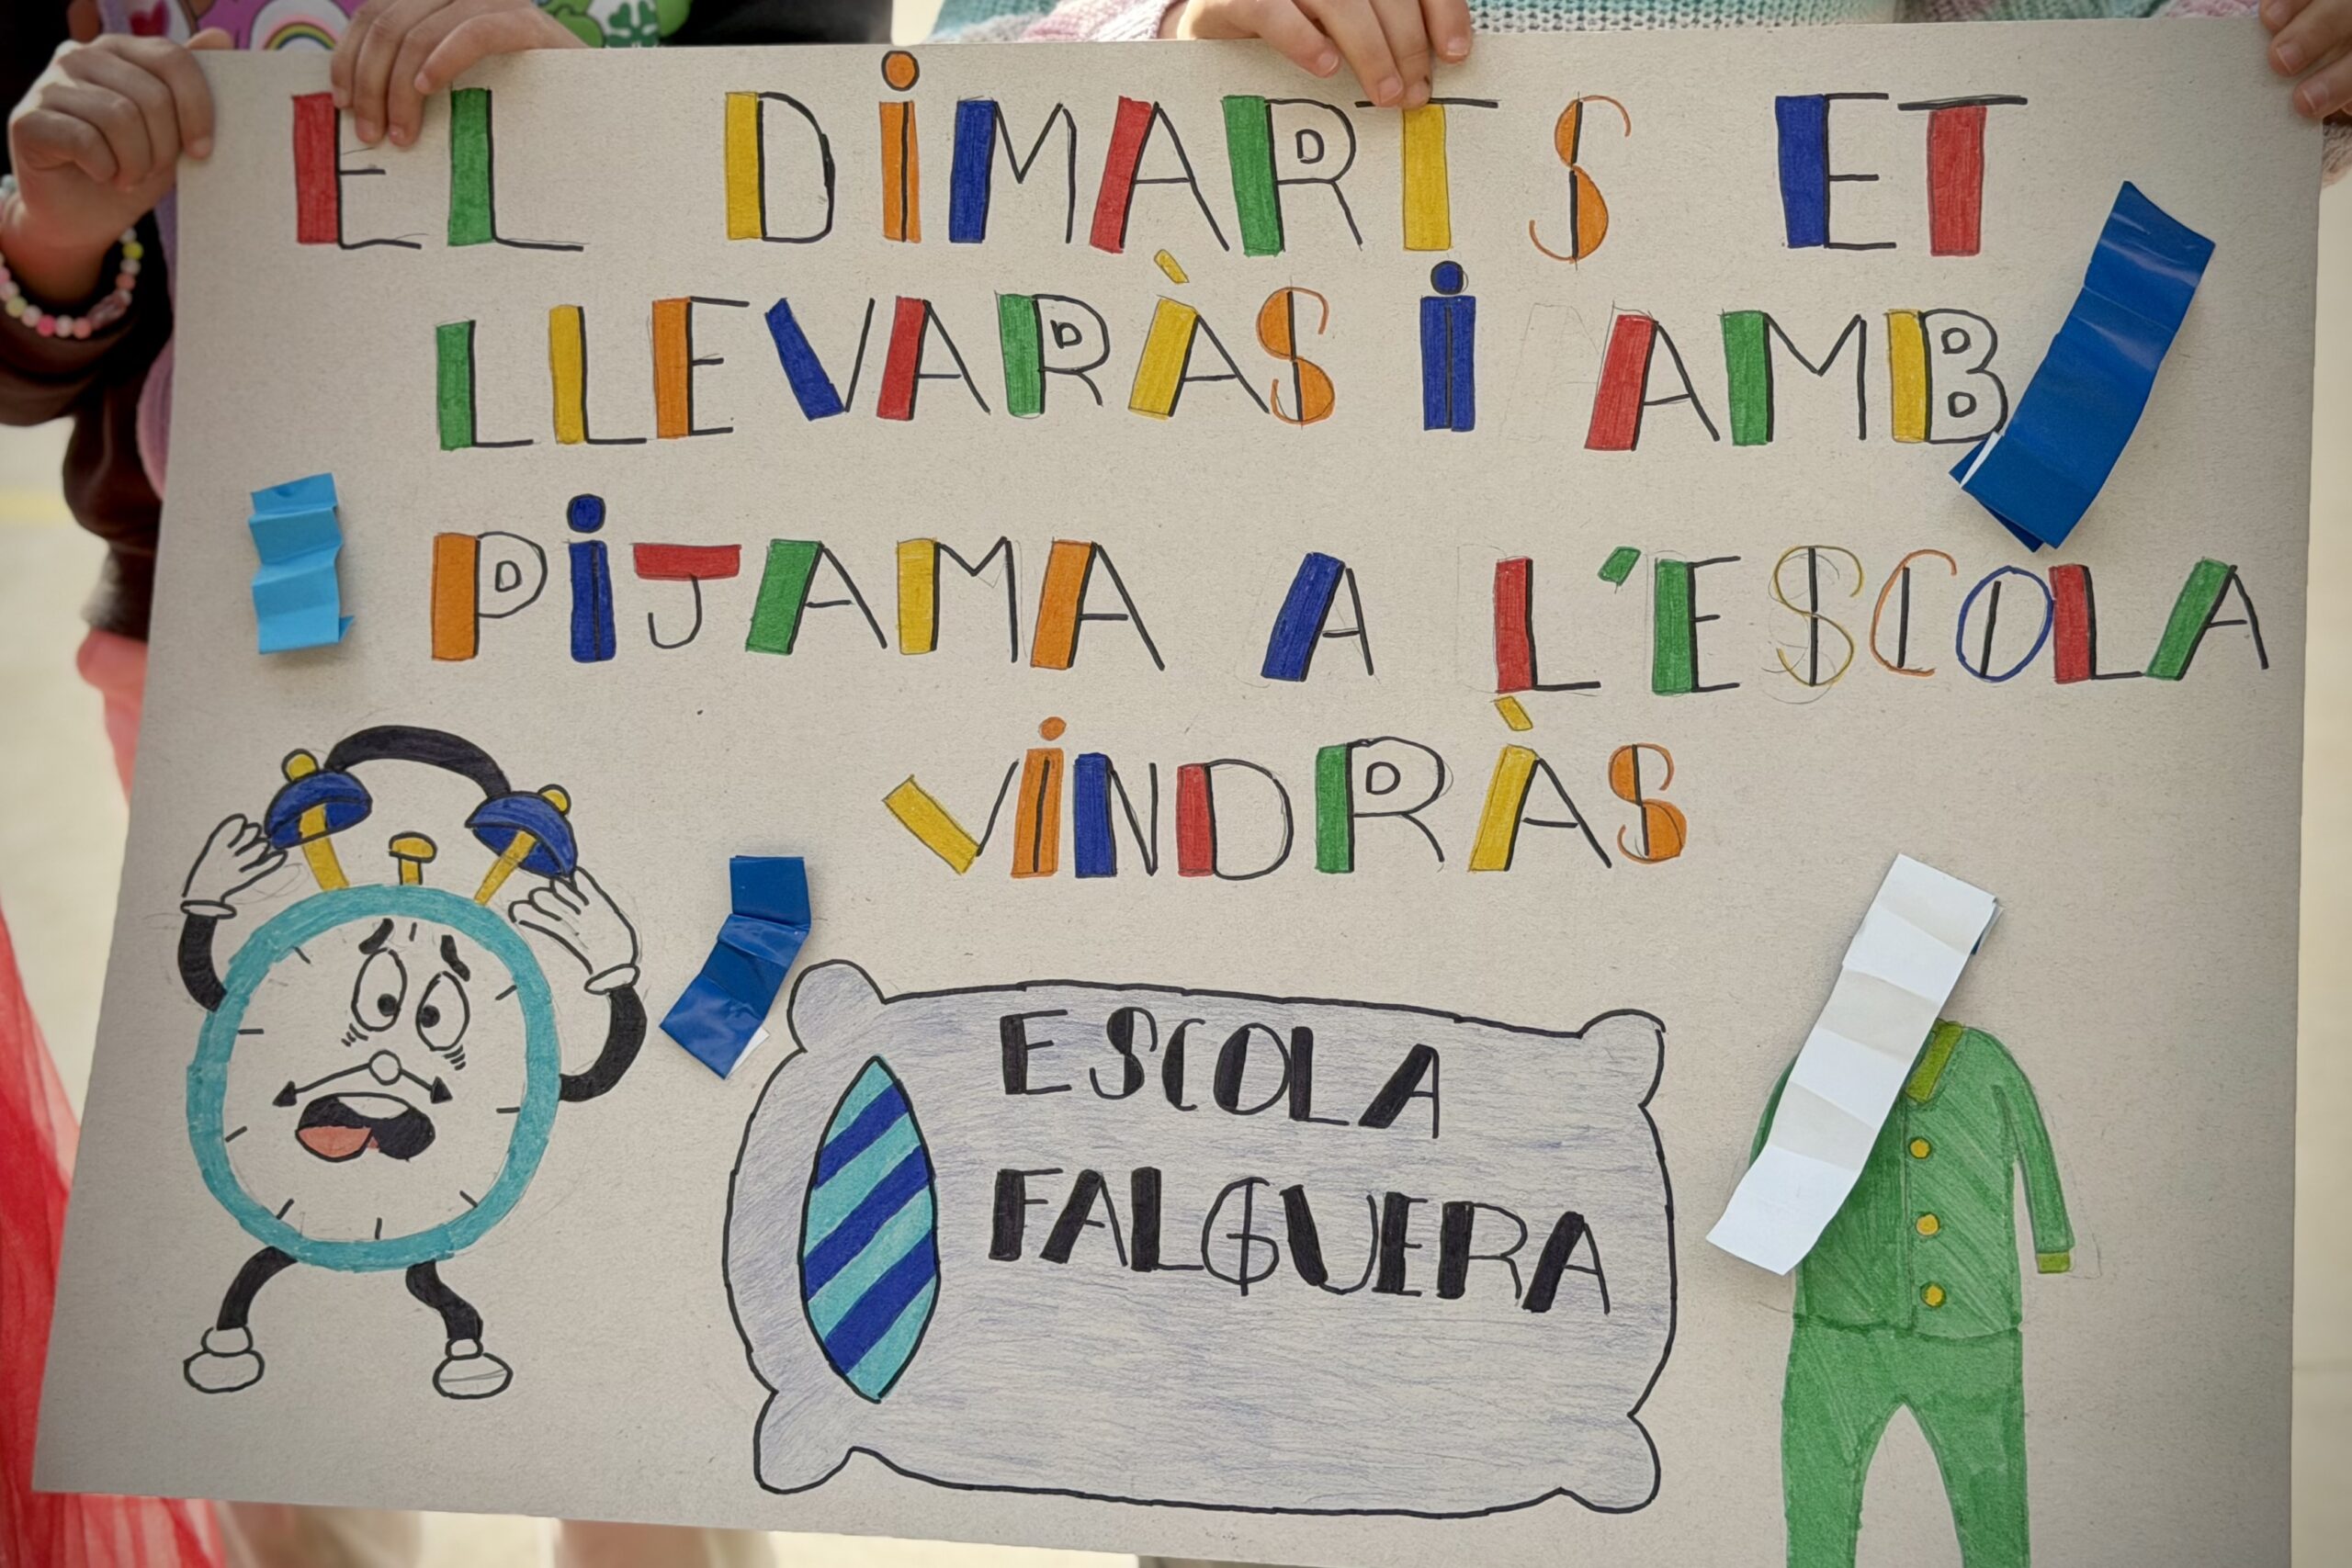 EL DIMARTS ET
LLEVARÀS I AMB
PIJAMA A L'ESCOLA
VINDRÀS
ESCOLA
FALGUERA